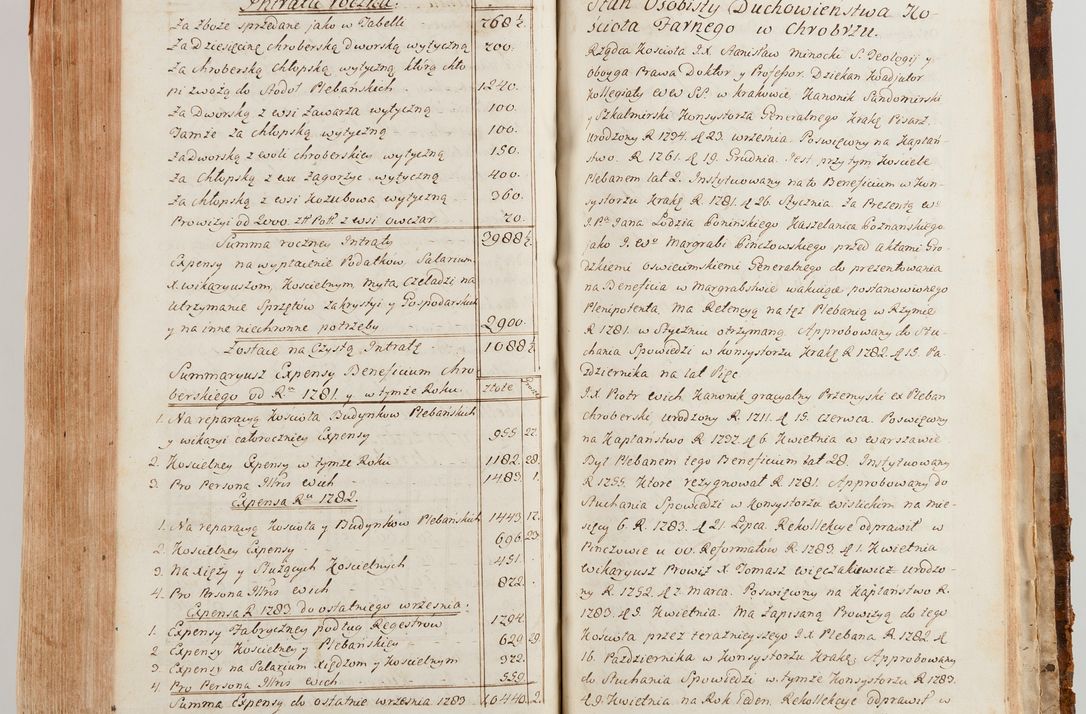 Intrata roczna.
Za Zboże sprzedane jako w Tabelli 768½.
Za Dziesięcinę chroberską Dworską wytyczną 200.
Za chroberską Chłopską wytyczną którą chło
pi zwożą do Stodoł Plebańskich 1240.
Za Dworską z wsi Zawarza wytyczną 100.
Tamże za chłopską wytyczną 100.
Za Dworską z woli chroberskiey wytyczną 150.
Za Chłopską z wsi Zagorzyc wytyczną 400.
Za chłopską z wsi Kozubowa wytyczną 360.
Prowizyi od 2000. złł Poll: z wsi owczar 70.
Summa roczney Intraty 3988½.
Expensy na wypłacenie Podatkow, Salarium
X. wikaryuszom, Kościelnym Myta, Czeladzi na
utrzymanie Sprzętow Zakrystyi y Gospodarskich
y na inne niechronne potrzeby 2900.
Zostaie na Czystą Intratę 1088½.
Summaryusz Expensy Beneficium chro
berskiego od Rᵘ 1781. y w tymże Roku. złote Grosze
1. Na reparacyą Kościoła Budynkow Plebańskich
y wikaryi całoroczney Expensy 955 27.
2. Kościelney Expensy w tymże Roku 1182. 28.
3. Pro Persona Illris ewich 1483. 1.
Expensa Rᵘ 1782.
1. Na reparacyą Kościoła y Budynkow Plebańskich 1443 17.
2. Kościelney Expensy 696 23
3. Na xięży y Służących Kościelnych 451.
4. Pro Persona Illris ewich 872.
Expensa R 1783 do ostatniego września:
1. Expensy fabryczney podług Regestrow 1294.
2 Expensy Kościelney y Plebańskiey 629 29.
3 Expensy na Salarium Xiędzom y Kościelnym 372.
4. Pro Persona Illris ewich 559.
Summa Expensy do ostatnie września 1783 10440. 2.
Stan Osobisty Duchowieństwa Ko-
ścioła Farnego w Chrobrzu.
Rządca Kościoła J.X. Stanisław Minocki S. Teologij y
oboyga Prawa Doktor y Profesor. Dziekan Koadjutor
Kollegiaty WW SS. w Krakowie, Kanonik Sandomirski
y Szkalmirski Konsystorza Generalnego Krakg Pisarz.
urodzony R 1734. d 23. września. Poświęcony na Kapłań-
stwo. R 1761. d 19. Grudnia. Jest przy tym Kościele
Plebanem lat 2. Instytuowany na to Beneficium w Kon-
systorzu Krakg R 1781. d 26 Stycznia. Za Prezentą wᵒ
J. Pᵃ Jana Łodzia Ponińskiego Kasztelanica Poznańskiego.
jako J. wᵒ Margrabi Pinczowskiego przed aktami Gro-
dzkiemi oświęcimskiemi Generalnego do prezentowania
na Beneficia w Margrabstwie wakuiące postanowionego
Plenipotenta, Ma Retencyą na też Plebanią w Rzymie
R 1781. w Styczniu otrzymaną. Approbowany do Słu-
chania Spowiedzi w konsystorzu Krakg R 1782. d 15. Pa-
ździernika na lat Pięć
J.X Piotr ewich Kanonik gracyalny Przemyski ex Pleban
chroberski, urodzony R. 1711. d 15. czerwca. Poświęcony
na Kapłaństwo R 1737. d 6. Kwietnia w warszawie
Był Plebanem tego Beneficium lat 28. Instytuowany
R 1755. Ktore rezygnował R 1781. Approbowany do
Słuchania Spowiedzi w Konsystorzu wiślickim na mie-
sięcy 6. R. 1783. d 21 Lipca. Rekollekcye odprawił w
Pinczowie u OO. Reformatow R. 1783. d 1. Kwietnia
wikaryusz Prowiz X Tomasz więczakiewicz urodzo-
ny R. 1752. d 7. Marca. Poświęcony na Kapłaństwo R.
1783. d 3. Kwietnia. Ma zapisaną Prowizyą do tego
Kościoła przez teraznieyszego J.X Plebana R 1782. d
16. Października w Konsystorzu Krakg. Approbowany
do Słuchania Spowiedzi w tymże Konsystorzu R 1783.
d 9. Kwietnia na Rok jeden. Rekollekcye odprawił w